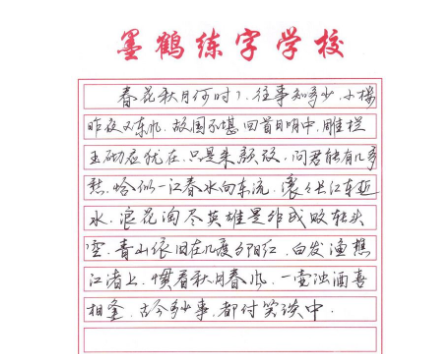 墨鹤练字学校
春花秋月何时了,往事知多少,小楼
昨夜又东风,故国不堪回首月明中,雕栏
玉砌应犹在,只是朱颜改,问君能有几多
愁,恰似一江春水向东流,滚滚长江东逝
水,浪花淘尽英雄是非成败转头
空,青山依旧在几度夕阳红,白发渔樵
江渚上,惯看秋月春风,一壶浊酒喜
相逢,古今多少事,都付笑谈中.